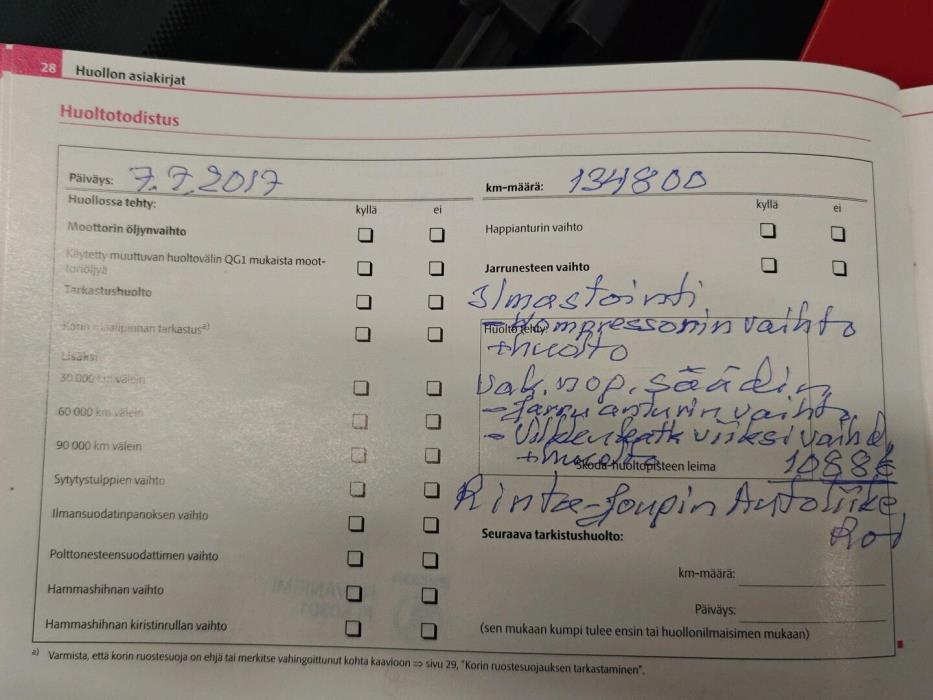 28 Huollon asiakirjat
Huoltotodistus
Päiväys: 7.7.2017
km-määrä: 134800
Huollossa tehty:
kyllä ei
kyllä ei
Moottorin öljynvaihto
Happianturin vaihto
Käytetty muuttuvan huoltovälin QG1 mukaista moot-
toriöljyä
Jarrunesteen vaihto
Tarkastushuolto
Ilmastointi
Korin maalipinnan tarkastus a)
Huolto tehty:
- Kompressorin vaihto
+ huolto
Lisäksi
30 000 km välein
Vak.nop. säädin
60 000 km välein
- Jarru anturin vaihto
90 000 km välein
vaihd
+ huolto
Skoda-huoltopisteen leima
1088€
Sytytystulppien vaihto
Rinta-Joupin Autoliike
Ilmansuodatinpanoksen vaihto
Seuraava tarkistushuolto:
Polttonesteensuodattimen vaihto
km-määrä:
Hammashihnan vaihto
Päiväys:
Hammashihnan kiristinrullan vaihto
(sen mukaan kumpi tulee ensin tai huollonilmaisimen mukaan)
a) Varmista, että korin ruostesuoja on ehjä tai merkitse vahingoittunut kohta kaavioon ⇒ sivu 29, "Korin ruostesuojauksen tarkastaminen".